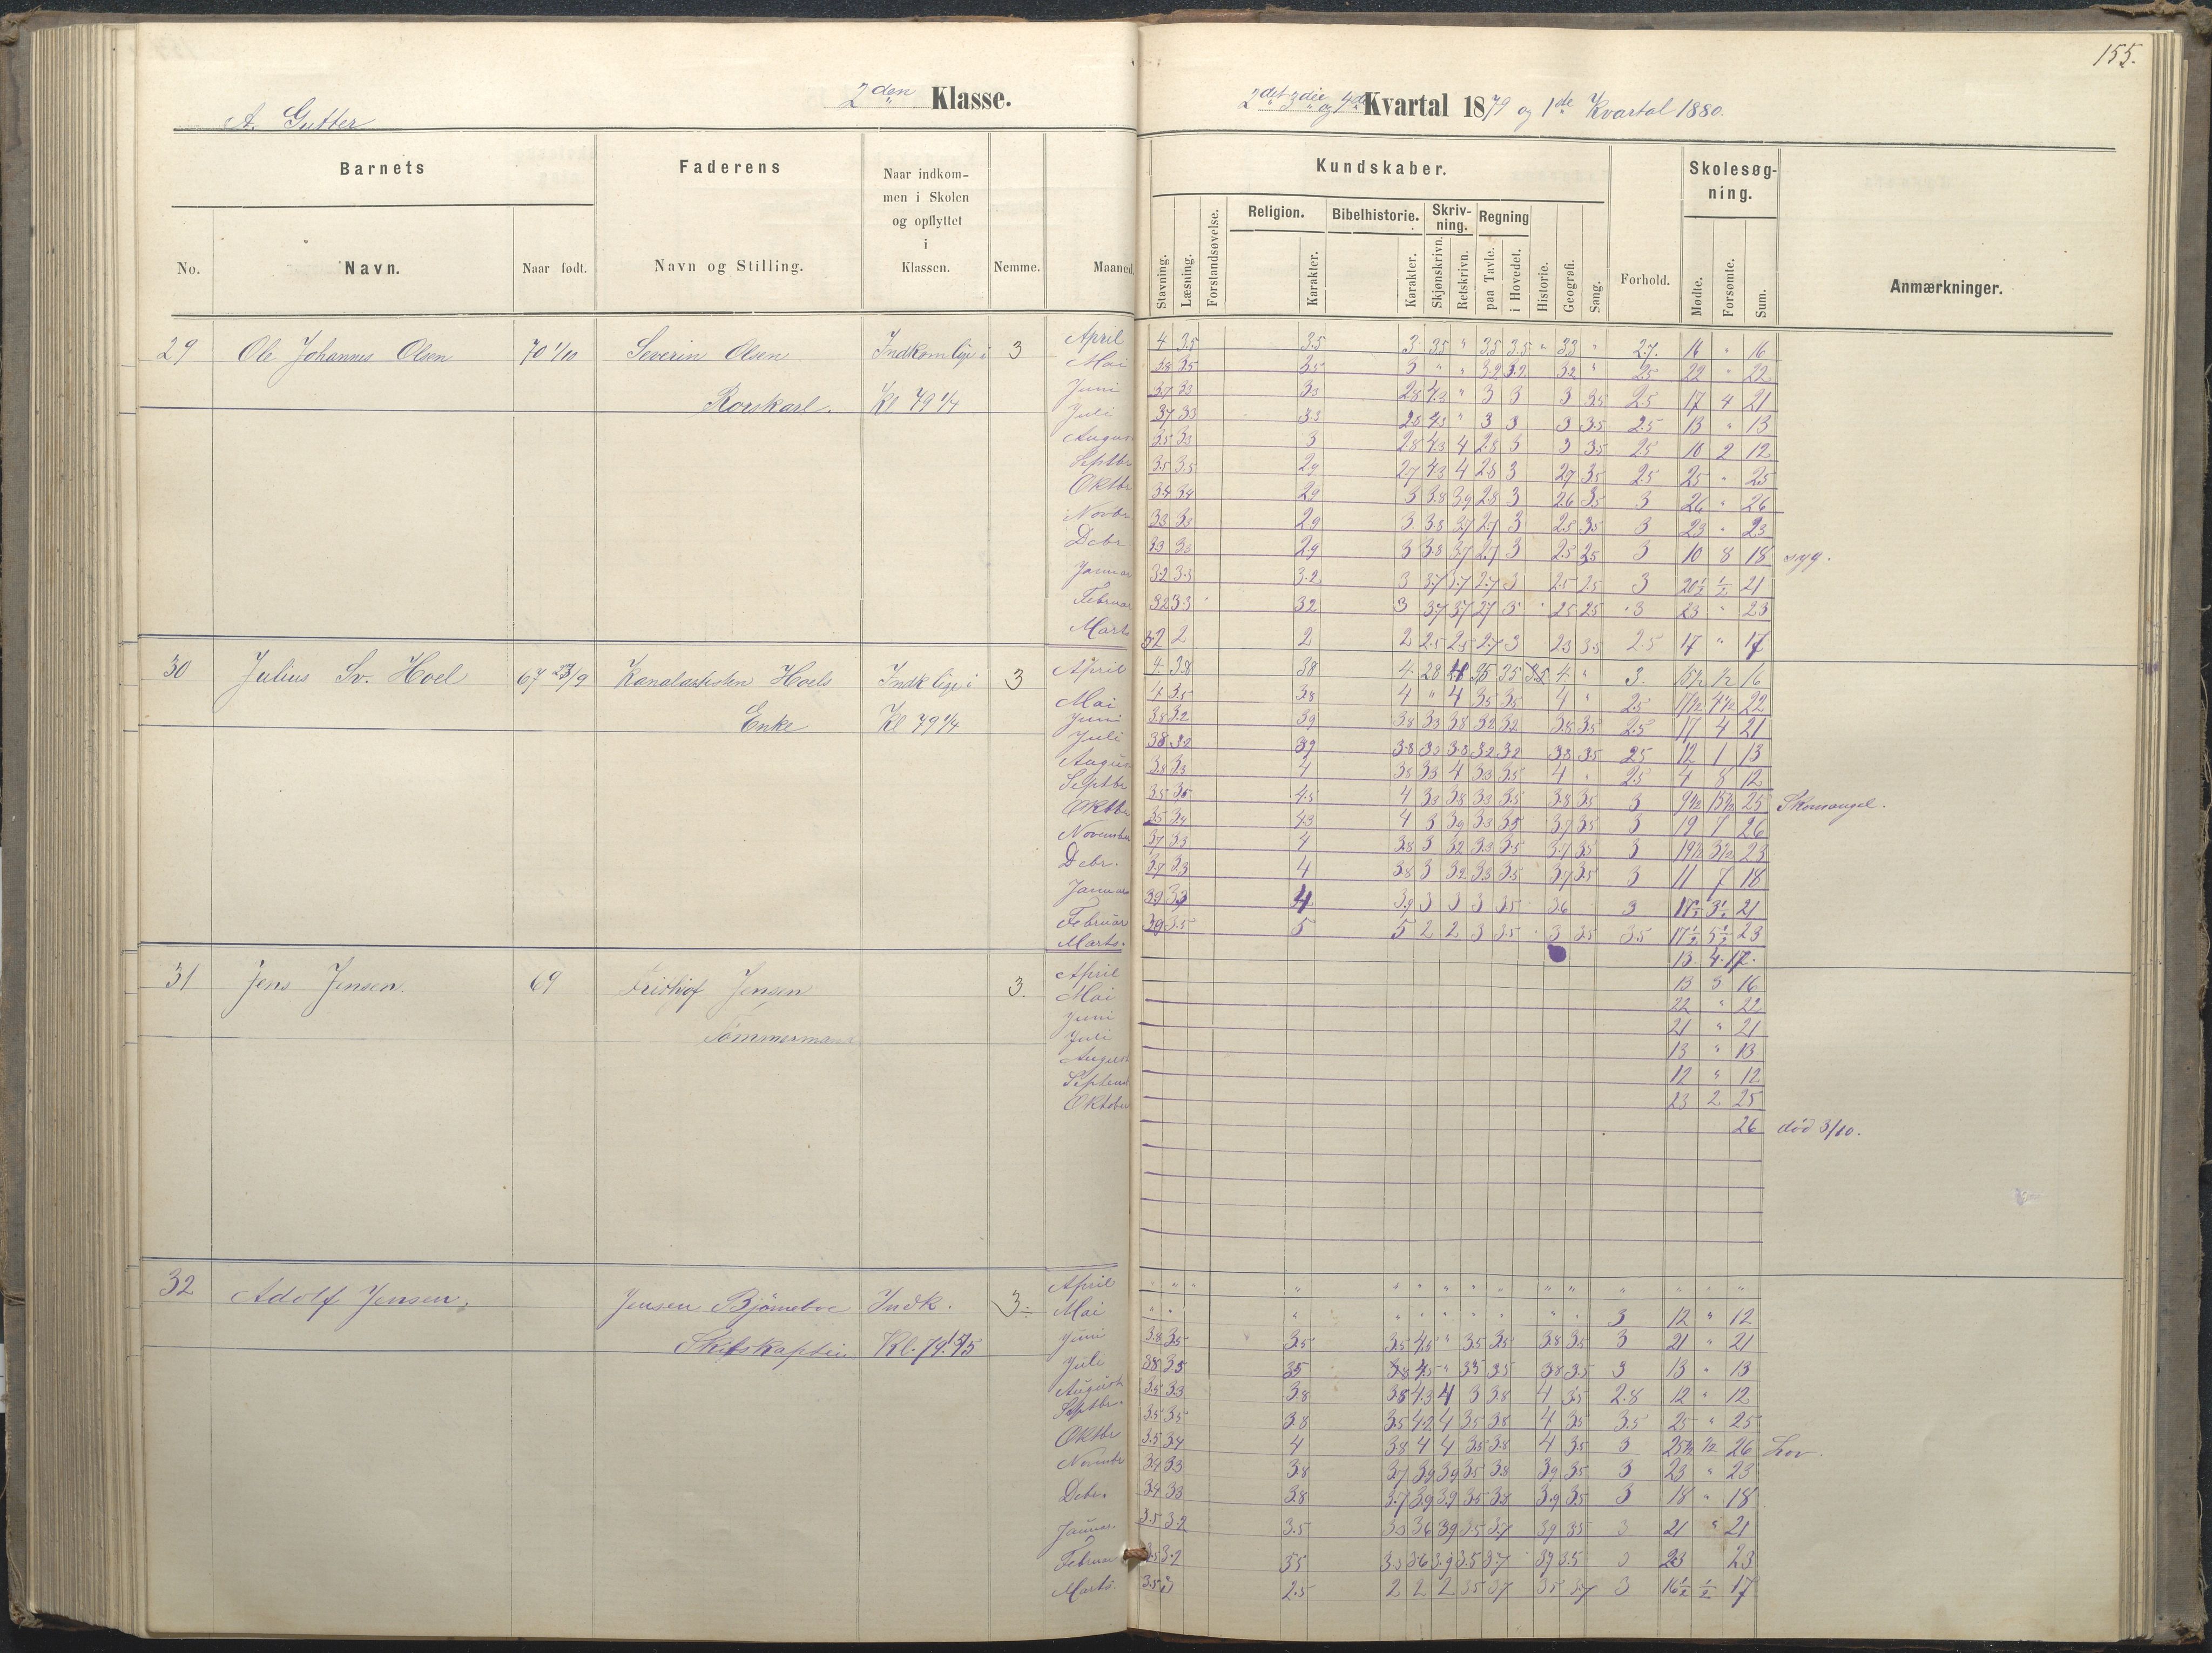 155.
A. Gutter
2den Klasse.
2det 3die og 4de Kvartal 1879 og 1ste Kvartal 1880.
Barnets
Faderens
Naar indkom-
men i Skolen
og opflyttet
i
Klassen.
No.
Navn.
Naar født.
Navn og Stilling.
Nemme.
Maaned.
Kundskaber.
Skolesøg-
ning.
Religion.
Bibelhistorie.
Skriv-
ning.
Regning
Stavning.
Læsning.
Forstandsøvelse.
Karakter.
Karakter.
Skjønskrivn.
Retskrivn.
paa Tavle.
i Hovedet.
Historie.
Geografi.
Sang.
Forhold.
Mødte.
Forsømte.
Sum.
Anmærkninger.
29 Ole Johannes Olsen 70 1/10 Severin Olsen Indkom lige i 3
Rorskarl. Kl 79 1/4
April 4 3.5 3.5 3 3.5 " 3.5 3.5 " 3.3 " 2.7. 16 " 16
Mai 3.8 3.5 3.5 3 " " 3.2 3.2 3.2 " 2.5 22 " 22
Juni 3.7 3.3 3.3 2.8 4.3 " 3 3 3 3.5 2.5 17 4 21
Juli 3.7 3.3 3.3 2.8 4.3 " 3 3 3 3.5 2.5 13 " 13
August 3.5 3.3 3 2.8 4.3 4 2.8 3 3 3.5 2.5 10 2 12
Septbr 3.5 3.5 2.9 2.7 4.3 4 2.8 3 2.7 3.5 2.5 25 " 25
Oktbr 3.4 3.4 2.9 3 3.8 3.9 2.8 3 2.6 3.5 3 26 " 26
Novbr 3.3 3.3 2.9 3. 3.8 3.7 2.7 3 2.5 3.5 3 23 " 23
Debr. 3.3 3.3 2.9 3 3.8 3.7 2.7 3 2.5 2.5 3 10 8 18 syg.
Januar 3.2 3.3 3.2 3 3.7 3.7 2.7 3 2.5 2.5 3 20 1/2 1/2 21
Februar 3.2 3.3 3.2 3 3.7 3.7 2.7 3 2.5 2.5 3 23 " 23
Marts 3.2 2 2 2 2.5 2.5 2.7 3 2.3 3.5 2.5 17 " 17
30 Julius Sv. Hoel 67 23/9 Hoels Indk lige i 3
Enke Kl 79 1/4
April 4. 3.8 3.8 4. 2.8 4 3.5 3.5 3.5 4 " 3. 15 1/2 1/2 16
Mai 4 3.5 3.8 4 " 4 3.5 3.5 4 " 2.5 17 1/2 4 1/2 22
Juni 3.8 3.2 3.9 3.8 3.3 3.8 3.2 3.2 3.8 3.5 2.5 17 4 21
Juli 3.8 3.2 3.9 3.8 3.3 3.8 3.2 3.2 3.8 3.5 2.5 12 1 13
August 3.8 3.3 4 3.8 3.3 4 3.3 3.5 4 " 2.5 4 8 12
Septbr 3.5 3.5 4.5 4 3.3 3.8 3.3 3.5 3.8 3.5 3 9 1/2 15 1/2 25 Skomangel.
Oktbr 3.5 3.4 4.3 4 3 3.9 3.3 3.5 3.7 3.5 3 19 7 26
November 3.7 3.3 4 3.8 3 3.2 3.3 3.5 3.7 3.5 3 19 1/2 3 1/2 23
Debr. 3.7 3.3 4 3.8 3 3.2 3.3 3.5 3.7 3.5 3 11 7 18
Januar 3.9 3.3 4 3.9 3 3 3 3.5 3.6 3 17 1/2 3 1/2 21
Februar 3.9 3.5 5 5 2 2 3 3.5 3 3.5 3.5 17 1/2 5 1/2 23
Marts. 13 4 17.
31 Jens Jensen. 69 Fridthjof Jensen 3.
Tømmermand
April 13 3 16
Mai 22 " 22
Juni 21 " 21
Juli 13 " 13
August 12 " 12
Septembr 23 2 25
Oktober 26 død 3/10.
32 Adolf Jensen. Jensen Bjørneboe Indk. 3.
Skibskaptein Kl. 79. 15/5
April " " " " " " " " " " " " " " "
Mai " " " " " " " " " " 3 12 " 12
Juni 3.8 3.5 3.5 3.5 4.5 " 3.5 3.5 3.8 3.5 3 21 " 21
Juli 3.8 3.5 3.5 3.8 4.5 " 3.5 3.5 3.8 3.5 3 13 " 13
August 3.5 3.3 3.8 3.5 4.3 4 3 3.8 4 3.5 2.8 12 " 12
Septbr. 3.5 3.5 3.8 3.5 4.2 4 3.5 3.8 4 3.5 3.5 25 " 25
Oktbr 3.5 3.4 4 3.8 4 4 3.5 3.8 4 3.5 3 25 1/2 1/2 26 Lov.
Novembr 3.4 3.3 3.8 3.7 3.9 3.9 3.5 3.8 3.9 3.5 3 23 " 23
Debr. 3.4 3.3 3.8 3.7 3.9 3.9 3.5 3.8 3.9 3.5 3 18 " 18
Januar. 3.5 3.2 3.5 3.3 3.6 3.9 3.5 3.7 3.9 3.5 3 21 " 21
Februar 3.5 3.2 3.5 3.3 3.6 3.9 3.5 3.7 3.9 3.5 3 23 23
Marts. 3.5 3 2.5 2 2 2 3.5 3.7 3.5 3.7 3 16 1/2 1/2 17